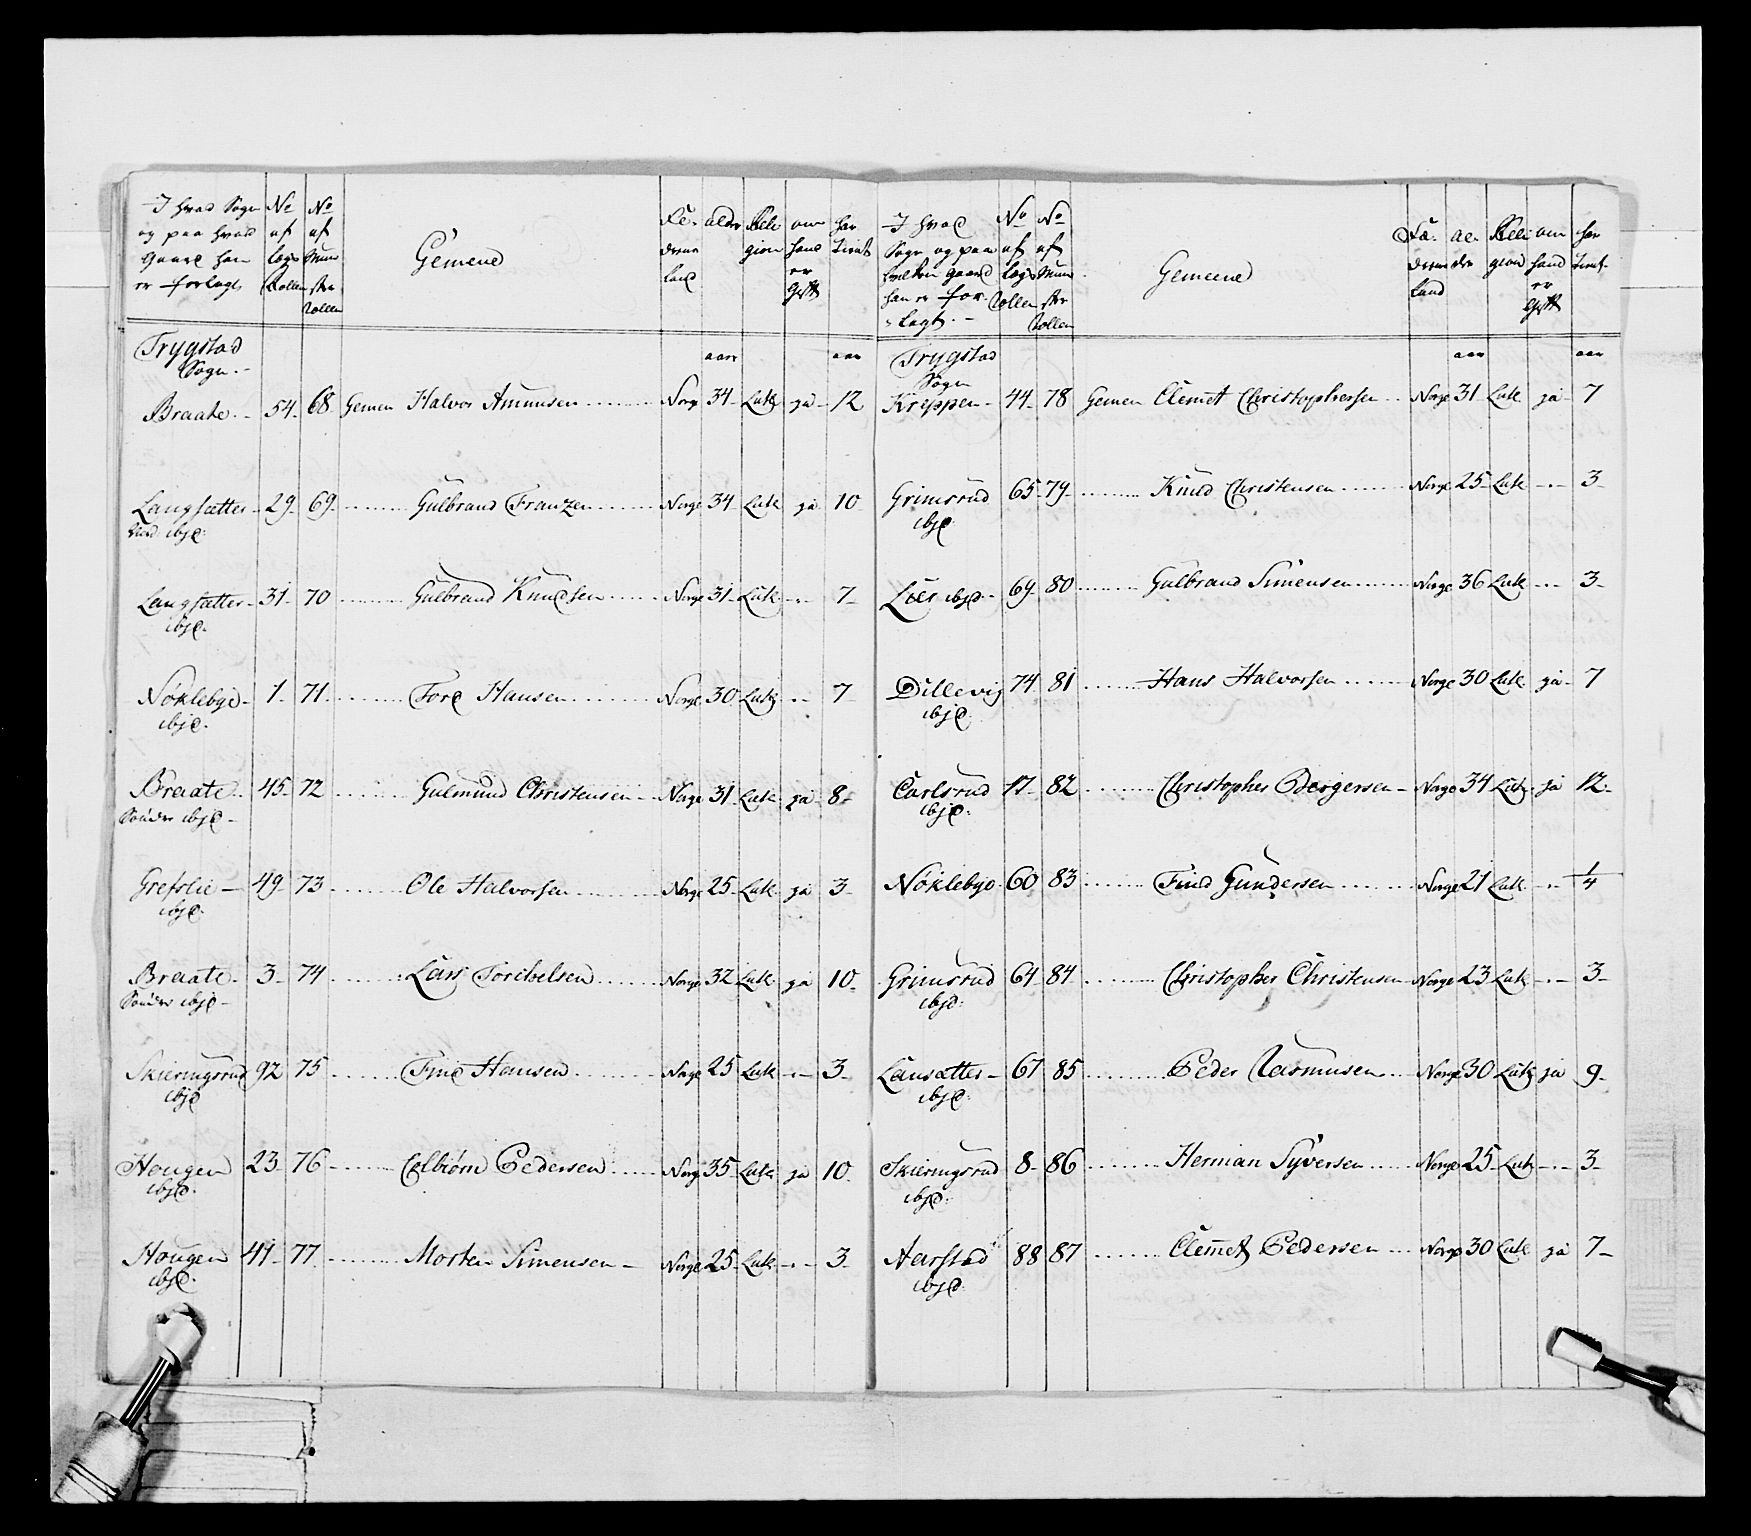 I hvad Sogn og paa hvad Gaard han er forlagt
No af Lægs Rollen
No af Mun ster Rollen
Gemene
Fæ- derne land
alder
Reli gion
om hand er Gift
har tient
Trygstad Sogn.
aar
aar
Braate 54 68 Gemen Halvor Amunsen Norge 34 Luth ja 12
Langsætter ibid: 29 69 Gulbrand Franzen Norge 34 Luth ja 10
Langsætter ibid. 31 70 Gulbrand Knudsen Norge 31 Luth -.- 7
Nøklebye ibid. 1 71 Tore Hansen Norge 30 Luth -.- 7
Braate Sønder ibid 45 72 Gulmund Christensen Norge 31 Luth ja 8
Grefslie ibid. 49 73 Ole Halvorsen Norge 25 Luth ja 3
Braate Sønder ibid 3 74 Lars Torchelsen Norge 32 Luth ja 10
Skieringsrud ibid 92 75 Find Hansen Norge 25 Luth -.- 3
Hougen ibid. 23 76 Elbiørn Pedersen Norge 35 Luth ja 10
Hougen ibid. 41 77 Morten Simensen Norge 25 Luth -.- 3
I hvad Sogn og paa hvilken Gaard han er for- lagt.
No af Lægs Rollen
No af Mun ster Rollen
Gemeene
Fæ- derne Land
al- der
Reli gion
om hand er Gift
har tient
Trygstad Sogn
aar
aar
Kreppen 44 78 Gemen Clemet Christophersen Norge 31 Luth ja 7
Grimsrud ibid 65 79 Knud Christensen Norge 25 Luth -.- 3
Lier ibid. 69 80 Gulbrand Simensen Norge 36 Luth -.- 3
Dillevig ibid. 74 81 Hans Halvorsen Norge 30 Luth ja 7
Carlsrud ibid. 17 82 Christopher Børgersen Norge 34 Luth ja 12
Nøklebye 60 83 Find Gundersen Norge 21 Luth -.- 1/4
Grimsrud ibid. 64 84 Christopher Christensen Norge 23 Luth -.- 3
Lansætter ibid. 67 85 Peder Rasmusen Norge 30 Luth ja 9
Skieringsrud ibid. 8 86 Herman Syversen Norge 25 Luth -.- 3
Aarstad ibid. 88 87 Clemet Pedersen Norge 30 Luth ja 7